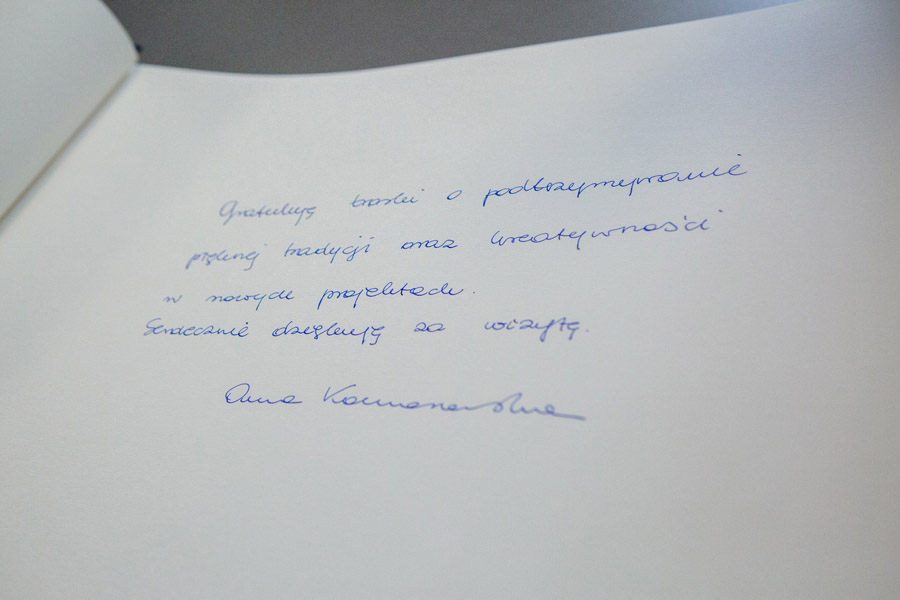 Gratuluję troski o podtrzymywanie
pięknej tradycji oraz kreatywności
w nowych projektach.
Serdecznie dziękuję za wizytę.
Anna